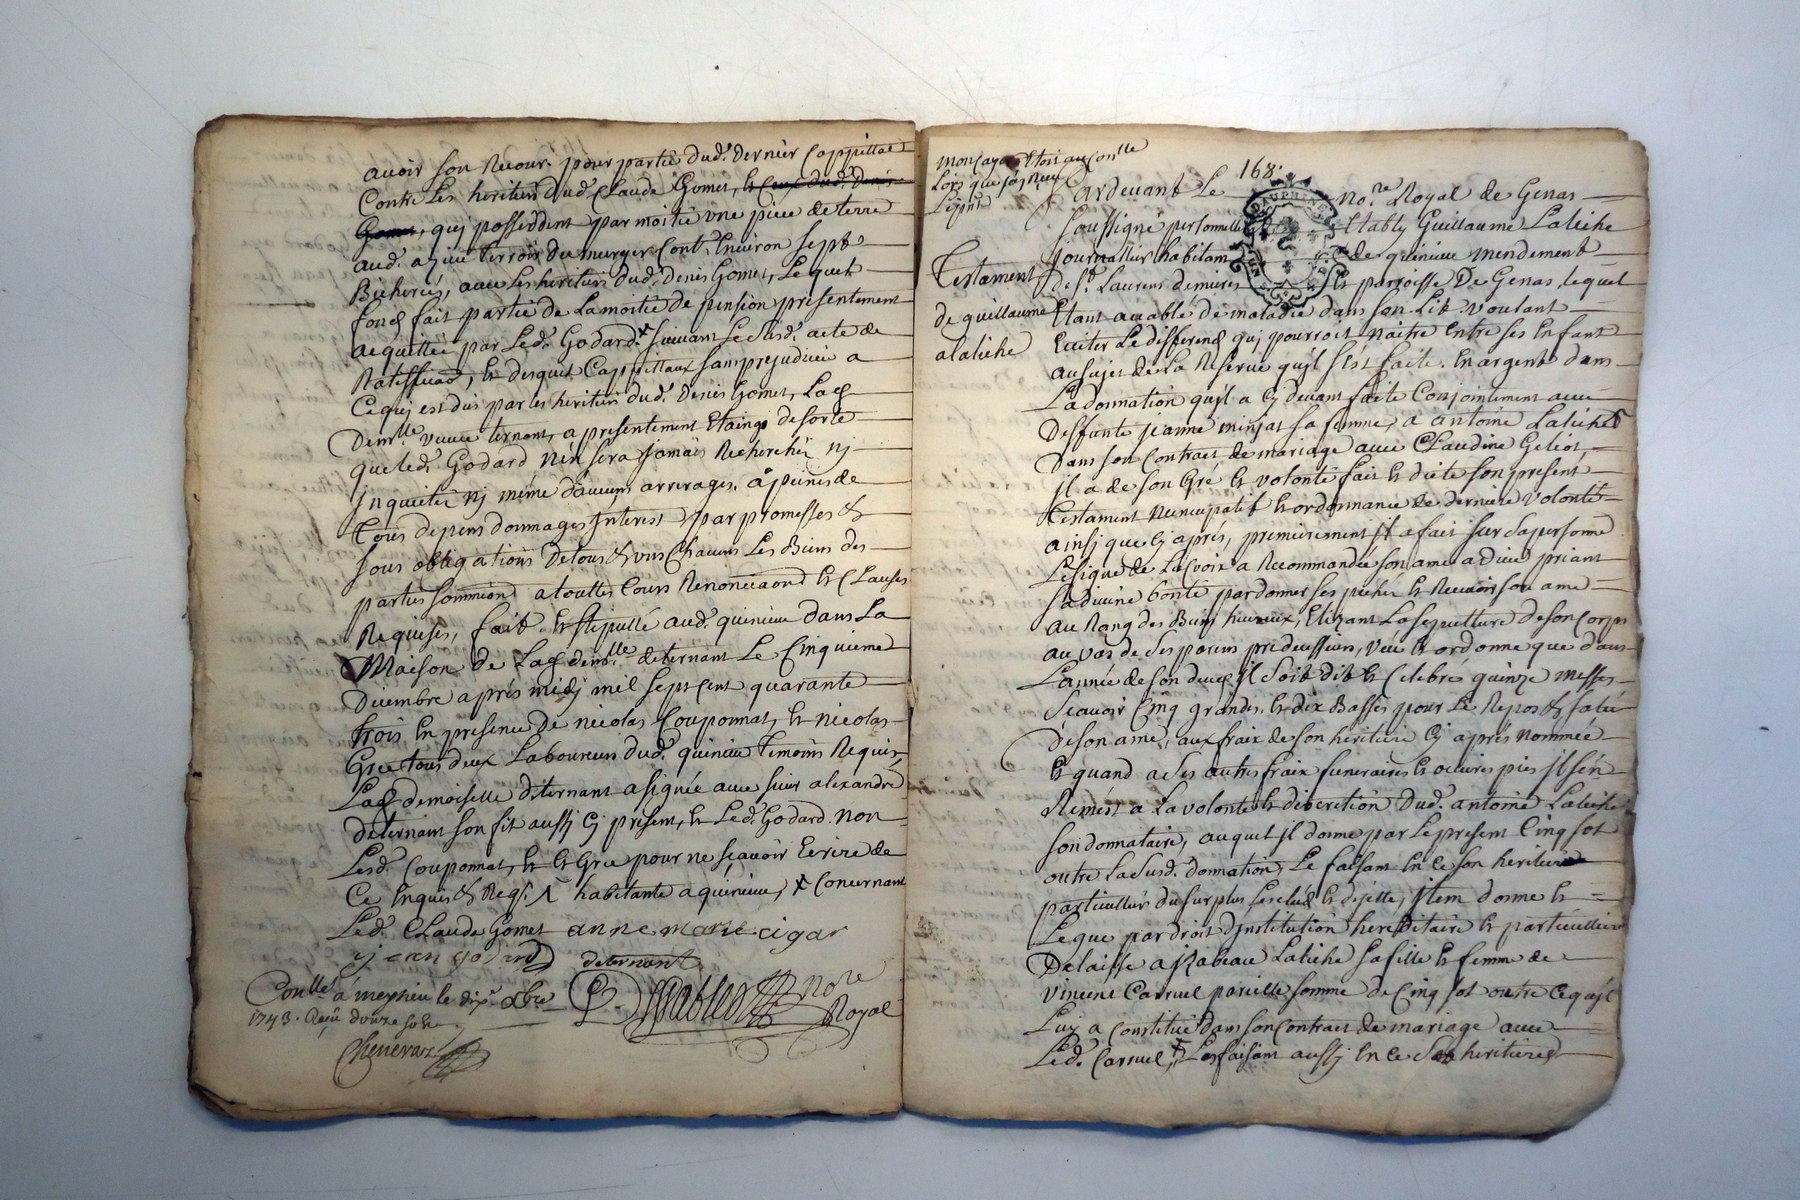 avoir son Recour. pour partie dud.t dernier Cappittal
Contre Les heritiers dud.t Claude Gomet, & Ceux dud.t Denis
Gomet, quj possedent par moitié une piece de terre
aud. terroir du murger Cont.t Environ sept
Bicherées, avec Les heritiers dud.t Denis Gomet, Lequel
fond fait partie de La moitié de pension presentement
acquittée par Led.t Godard, suivant Le susd.t acte de
Ratiffication, & desquels Cappittaux sans prejudice a
Ce quj est dus par les heritiers dud.t Denis Gomet, Lad.
Dem.lle veuve ternant, a presentement de sorte
que led.t Godard n'en sera jamais Recherché nj
jnquieté nj même d'aucuns arrerages, à peines de
Tous depens dommages Interest par promesses &
sous obligations de tous & uns Chacuns Les Biens des
parties a touttes Cours Renonciaond & Clauses
Requises, fait & stipullé aud.t quinieu dans La
Maison de Lad. dem.lle de ternant Le Cinquieme
Dicembre aprés midj mil sept Cent quarante
trois En presence de nicolas Couponnat, & nicolas
Gree tous deux Laboureurs dud.t quinieu Temoins Requis,
Lad. demoiselle de ternant a signée avec sieur alexandre
de ternant son fit aussj Cj present, & Led.t Godard non
Lesd.t Couponnat, & Gree pour ne sçavoir Ecrire de
Ce Enquis & Reqs. habitante a quinieu, Concernant
Led.t Claude Gomet anne marie cigar
jean godard deternant
Con.lle à meyzieu le dix.e xbre No.re
1743. Reçu douze sols Royal
Chenevaz
168.
Lors que
Pardevant Le No.re Royal de Genas
soussigné personnelle Etably Guillaume Latiche
journallier habitant de quinieu mendement
Testament de St. Laurens demures & parroisse De Genas, lequel
de guillaume Etant accablé de maladie dans son Lit voulant
alatiche Eviter Le differend quj pourroit naitre Entre ses Enfant
au sujet de La Reserve qu'jl s'est faite. En argent dans
La donnation qu'jl a Cj devant faite Conjointement avec
Deffunte jeanne minjat sa femme, a antoine Latiche
Dans son Contract de mariage avec Claudine Geliot,
jl a de son Gré & volonté fait & dicté son present
testament nuncupatif & ordonnance de derniere volonté
ainsj que Cj aprés, premierement jl a fait sur sa personne
Le signe de La Croix a Recommandée son ame a Dieu priant
sa divine bonté pardonner ses pechés & Recevoir son ame
au Rang des Bien heureux, Elizant La sepulture de son Corps
au vas de ses parens predecessieurs, veut & ordonne que dans
L'année de son deces jl soit dit & Celebré quinze messes
Scavoir Cinq grandes & dix Basses pour Le Repos & salut
de son ame, aux fraix de son heritiere Cj aprés nommée
& quand a ses autres fraix funeraires & œuvres pies jl s'en
Remest a La volonté & discretion dud.t antoine Latiche
son donnataire, auquel jl donne par Le present Cinq sol
outre La susd.t donnation, Le faisant En ce son heritier
particullier du surplus & item donne &
Legue par droit d'Institution hereditaire & particulliere
Delaisse a jzabeau Latiche sa fille & femme de
vincent Carruel pareille somme de Cinq sol outre Ce qu'jl
Luj a Constitué dans son Contract de mariage avec
Led.t Carruel, Les faisant aussj En ce ses heritieres